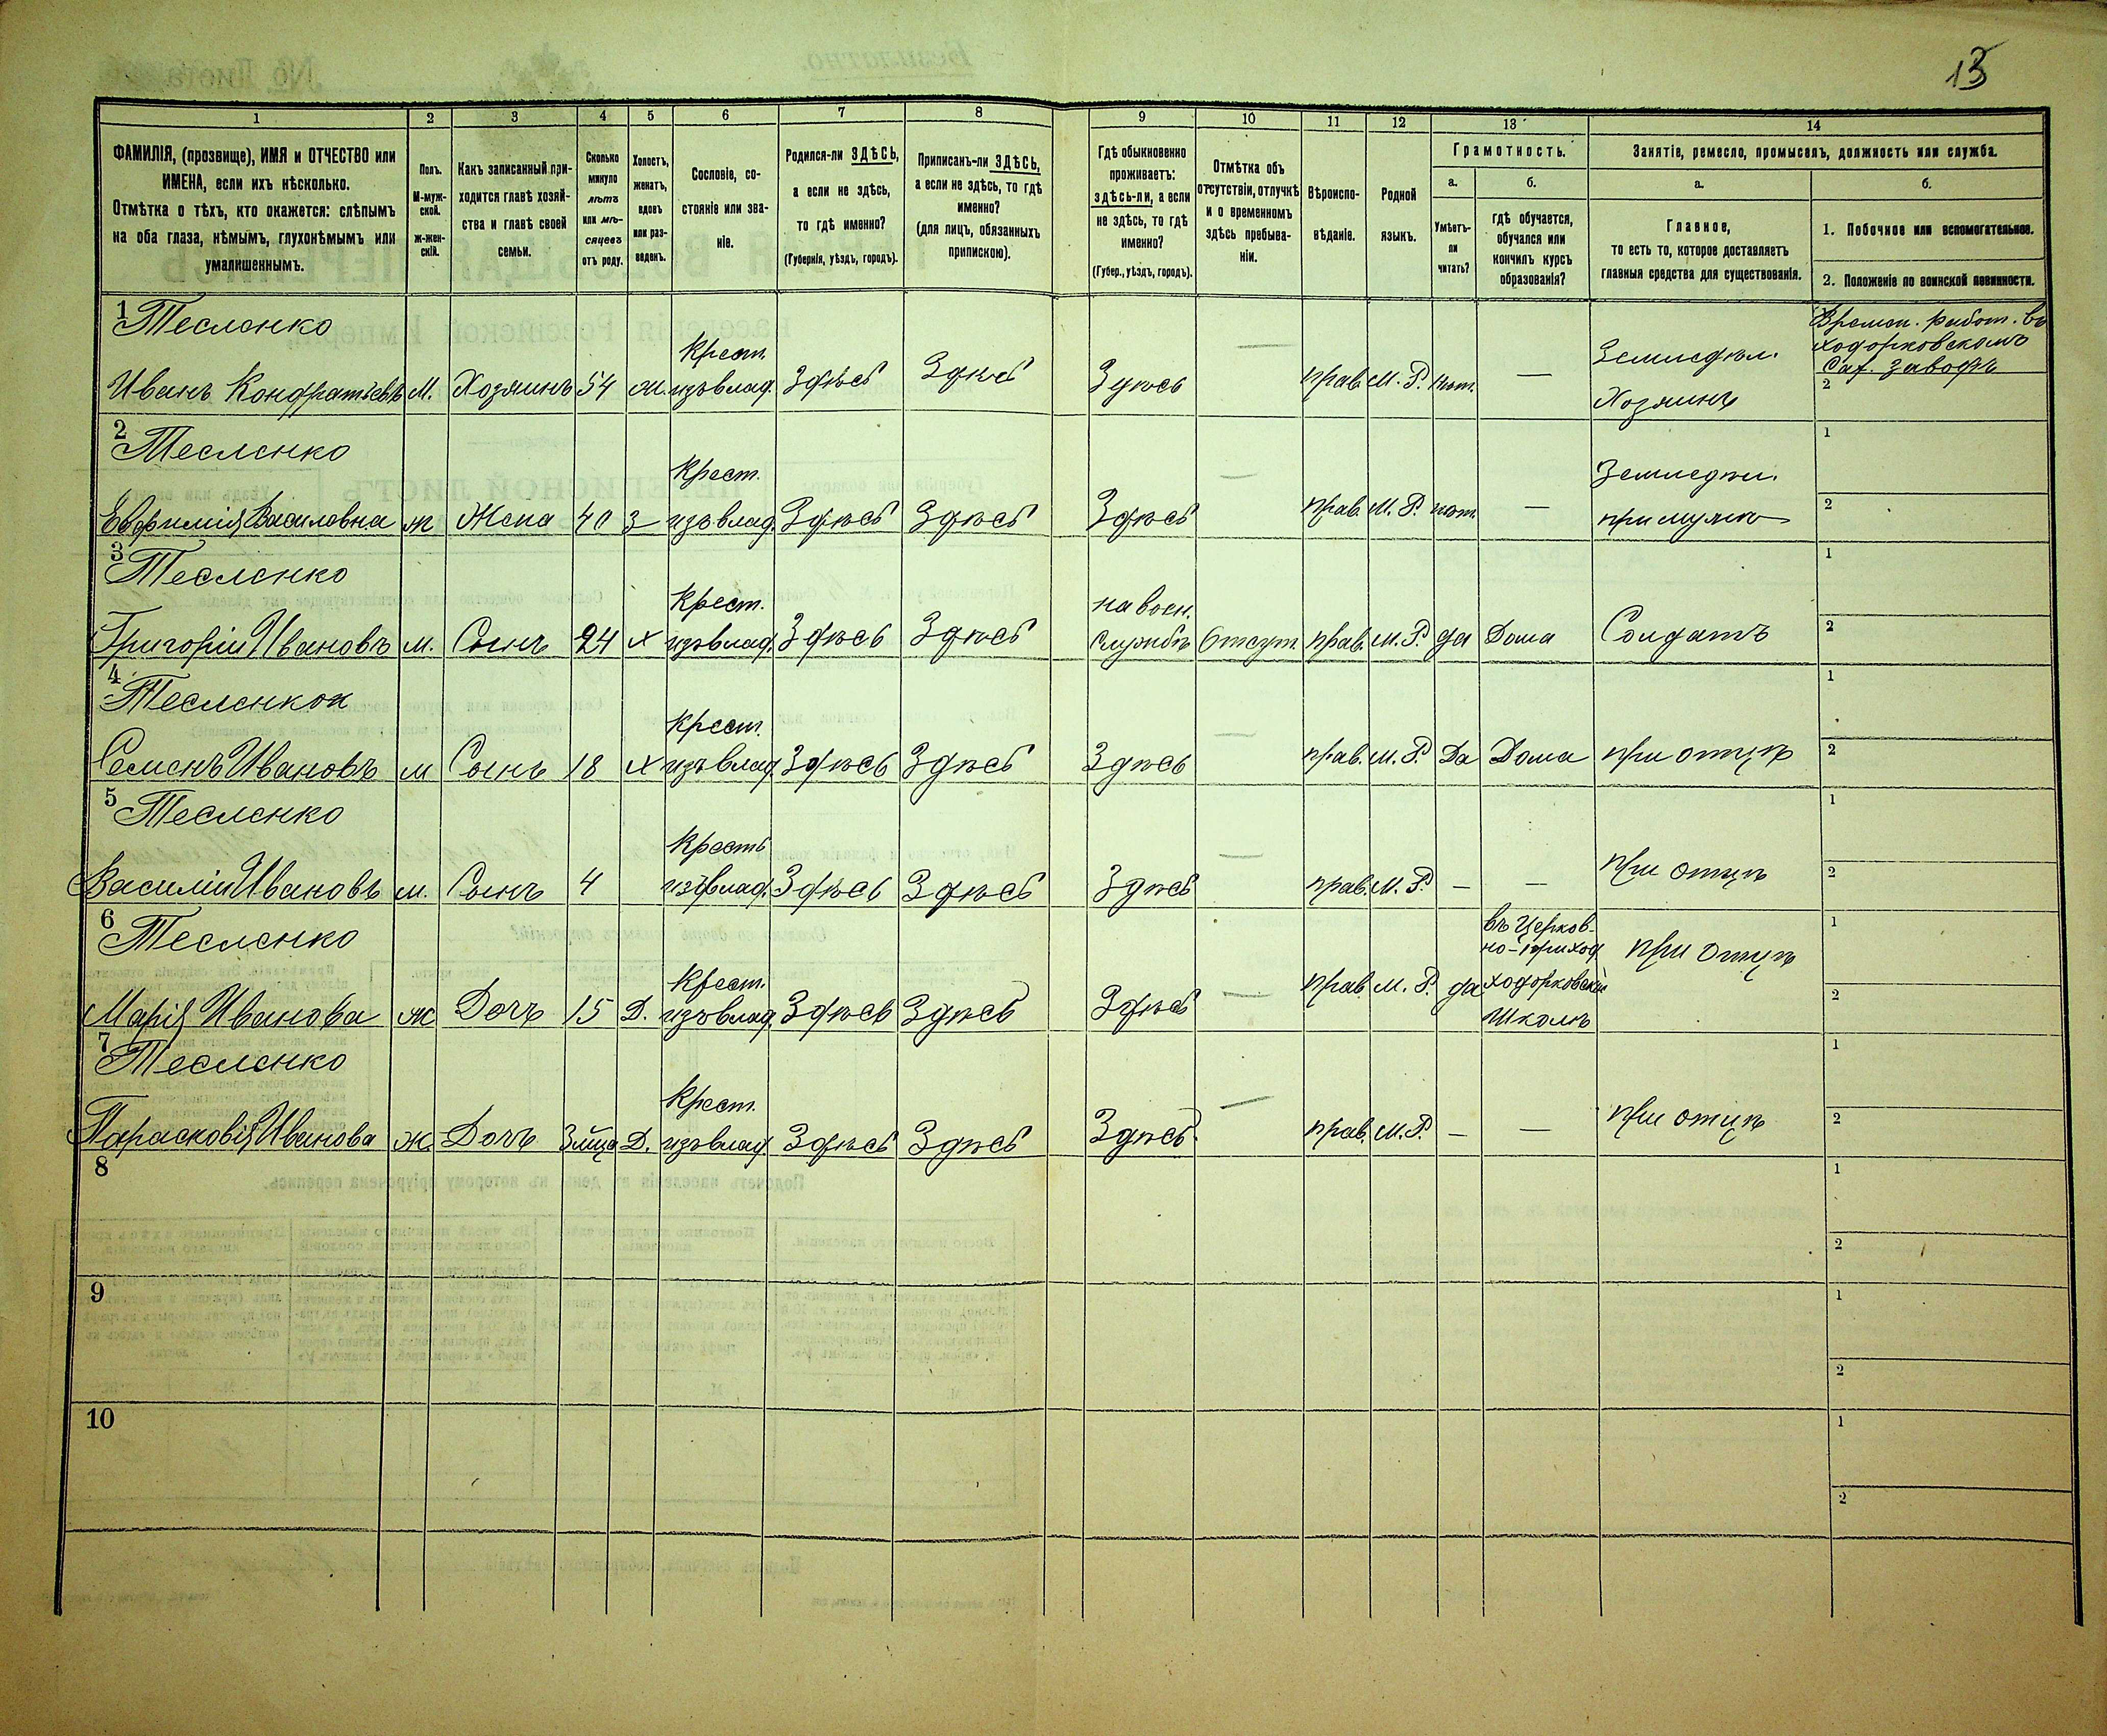 13
1 2 3 4 5 6 7 8 9 10 11 12 13 14
ФАМИЛІЯ, (прозвище), ИМЯ и ОТЧЕСТВО или
ИМЕНА, если ихъ нѣсколько.
Отмѣтка о тѣхъ, кто окажется: слѣпымъ
на оба глаза, нѣмымъ, глухонѣмымъ или
умалишеннымъ.
Полъ.
М-муж-
ской.
Ж-жен-
скій.
Какъ записанный при-
ходится главѣ хозяй-
ства и главѣ своей
семьи.
Сколько
минуло
лѣтъ
или мѣ-
сяцевъ
отъ роду.
Холостъ,
женатъ,
вдовъ
или раз-
веденъ.
Сословіе, со-
стояніе или зва-
ніе.
Родился-ли ЗДѢСЬ,
а если не здѣсь,
то гдѣ именно?
(Губернія, уѣздъ, городъ).
Приписанъ-ли ЗДѢСЬ,
а если не здѣсь, то гдѣ
именно?
(для лицъ, обязанныхъ
припискою).
Гдѣ обыкновенно
проживаетъ:
здѣсь-ли, а если
не здѣсь, то гдѣ
именно?
(Губер., уѣздъ, городъ).
Отмѣтка объ
отсутствіи, отлучкѣ
и о временномъ
здѣсь пребыва-
ніи.
Вѣроиспо-
вѣданіе.
Родной
языкъ.
Грамотность.
а.
Умѣетъ-
ли
читать?
б.
гдѣ обучается,
обучался или
кончилъ курсъ
образованія?
Занятіе, ремесло, промыселъ, должность или служба.
а.
Главное,
то есть то, которое доставляетъ
главныя средства для существованія.
б.
1. Побочное или вспомогательное.
2. Положеніе по воинской повинности.
1 Тесленко
Иванъ Кондратьевъ М. Хозяинъ 54 ж. Крест. изъ влад. Здѣсь Здѣсь Здѣсь — прав. М. Р. нѣт. — Земледѣл. Хозяинъ
Времен. работ. въ
Ходорковскомъ
Сах. Заводѣ
2
2 Тесленко
Евфимія Василовна ж Жена 40 З Крест. изъ влад. Здѣсь Здѣсь Здѣсь — прав. М. Р. нѣт. — Земледѣл. при мужѣ
1
2
3 Тесленко
Григорій Ивановъ м. Сынъ 24 х Крест. изъ влад. Здѣсь Здѣсь на воен. Службѣ Отсут. прав. М. Р. да Дома Солдатъ
1
2
4 Тесленкои
Семенъ Ивановъ м Сынъ 18 х Крест. изъ влад. Здѣсь Здѣсь Здѣсь — прав. М. Р. Да Дома при отцѣ
1
2
5 Тесленко
Василій Ивановъ м. Сынъ 4 Кресть изъ влад. Здѣсь Здѣсь Здѣсь — прав. М. Р. — — при отцѣ
1
2
6 Тесленко
Марія Иванова ж Дочь 15 Д. Крест. изъ влад. Здѣсь Здѣсь Здѣсь — прав. М. Р. да
въ Церков-
но-приход
Ходорковской
Школѣ
при отцѣ
1
2
7 Тесленко
Парасковія Иванова ж Дочь 3 мца Д. Крест. изъ влад. Здѣсь Здѣсь Здѣсь — прав. М. Р. — — при отцѣ
1
2
8
1
2
9
1
2
10
1
2